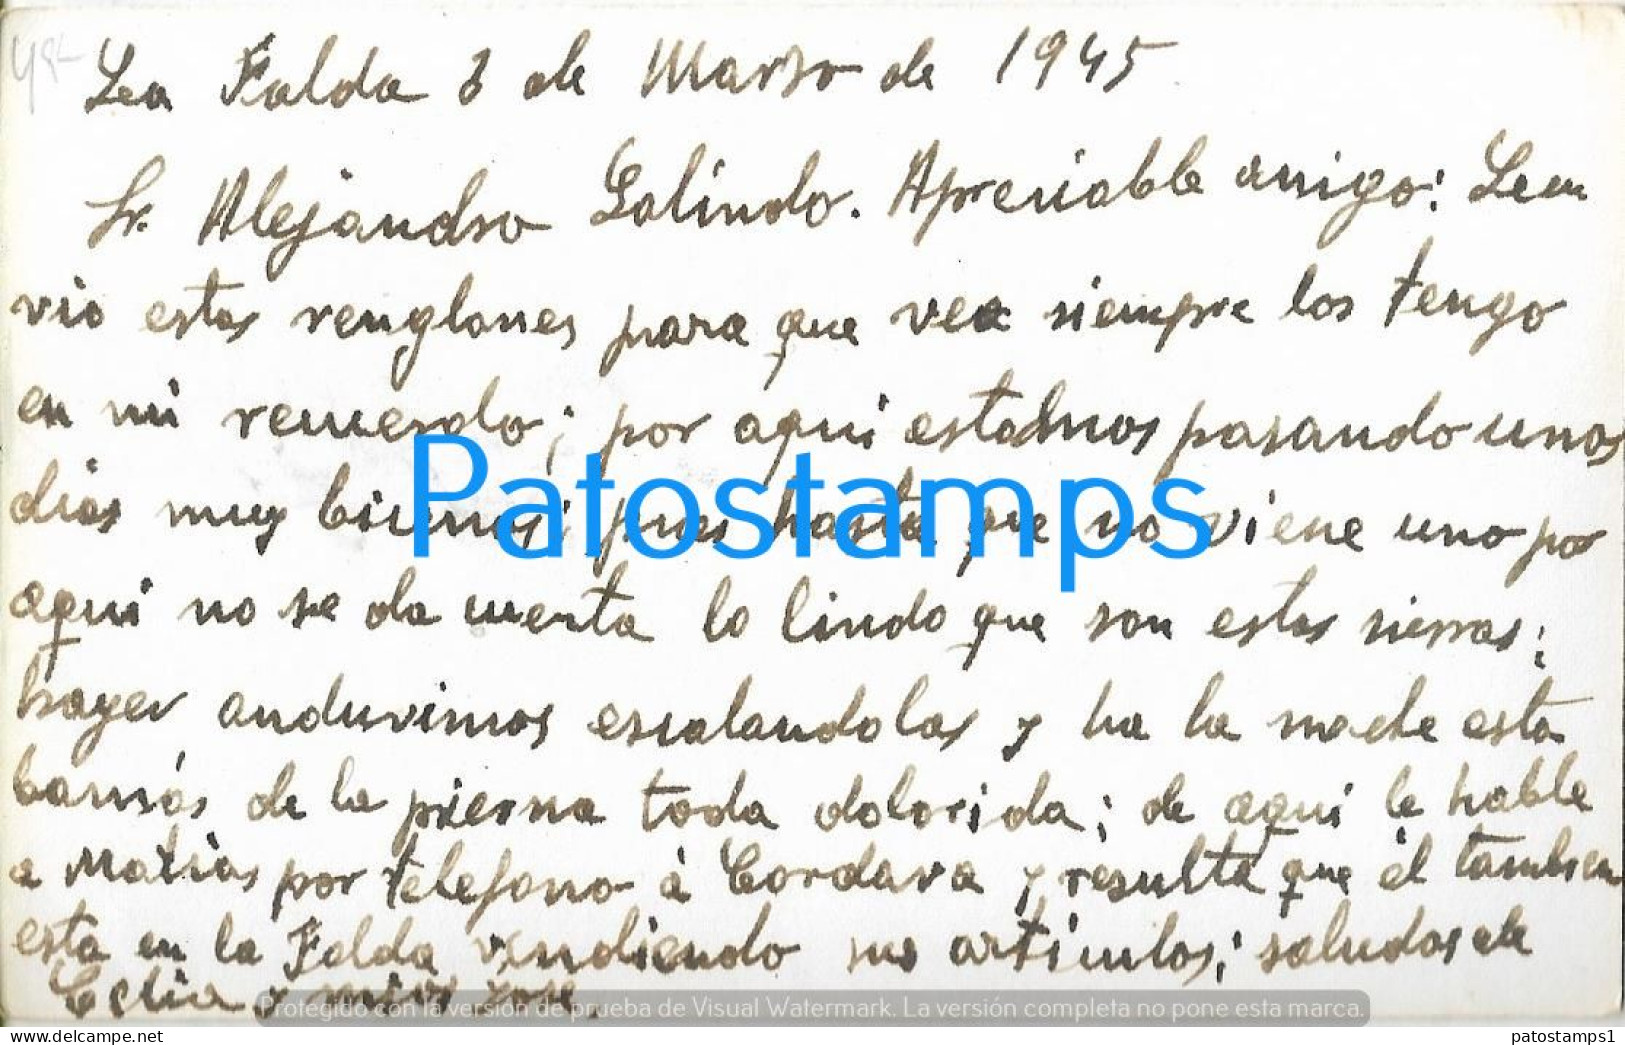 La Falda 3 de Marzo de 1945
Sr. Alejandro Galindo. Apreciable amigo: Le en
vio estos renglones para que vea siempre los tengo
en mi recuerdo; por aqui estabmos pasando unos
dias muy buenos; pues hasta que no viene uno por
aqui no se da cuenta lo lindo que son estas sierras;
hayer anduvimos escalandolas y ha la noche esta
bamós de la pierna toda dolorida; de aqui le hable
a Matias por telefono á Cordava y resulta que él tambien
esta en la Falda vendiendo sus articulos; saludos de
Celia y mios José.
Patostamps
Protegido con la versión de prueba de Visual Watermark. La versión completa no pone esta marca.
www.delcampe.net
patostamps1